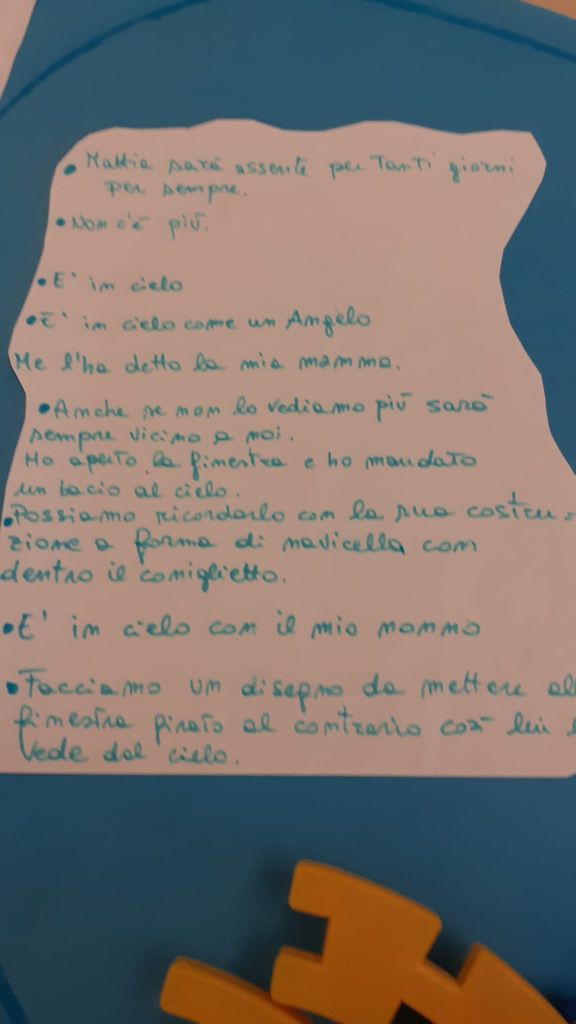 • Mattia sarà assente per Tanti giorni
per sempre.
• Non c'è più.
• E' in cielo
• E' in cielo come un Angelo
Me l'ha detto la mia mamma.
• Anche se non lo vediamo più sarà
sempre vicino a noi.
Ho aperto la finestra e ho mandato
un bacio al cielo.
• Possiamo ricordarlo con la sua costru-
zione a forma di navicella con
dentro il coniglietto.
• E' in cielo con il mio nonno
• Facciamo un disegno da mettere al
finestra girato al contrario così lui l
vede dal cielo.